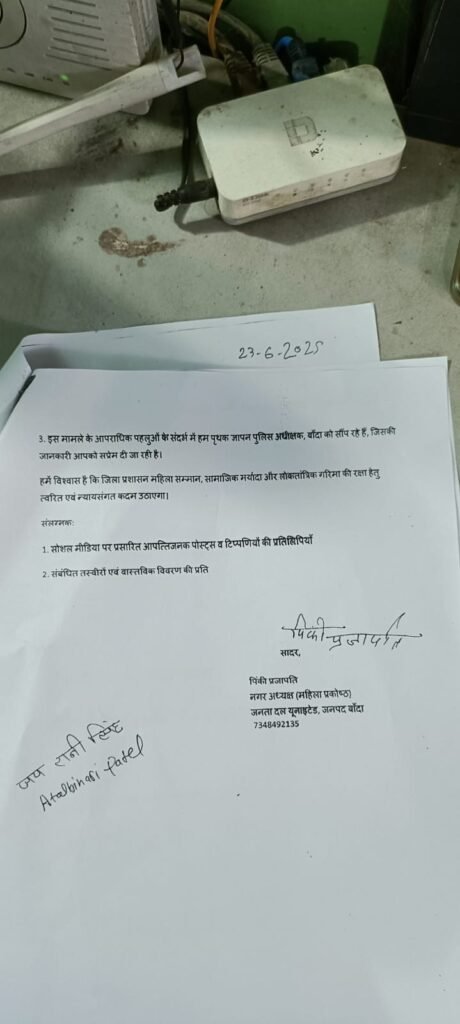 23-6-2025
3. इस मामले के आपराधिक पहलुओं के संदर्भ में हम पृथक ज्ञापन पुलिस अधीक्षक, बाँदा को सौंप रहे हैं, जिसकी
जानकारी आपको सप्रेम दी जा रही है।
हमें विश्वास है कि जिला प्रशासन महिला सम्मान, सामाजिक मर्यादा और लोकतांत्रिक गरिमा की रक्षा हेतु
त्वरित एवं न्यायसंगत कदम उठाएगा।
संलग्नक:
1. सोशल मीडिया पर प्रसारित आपत्तिजनक पोस्ट्स व टिप्पणियों की प्रतिलिपियाँ
2. संबंधित तस्वीरों एवं वास्तविक विवरण की प्रति
पिंकी प्रजापति
सादर,
पिंकी प्रजापति
नगर अध्यक्ष (महिला प्रकोष्ठ)
जनता दल यूनाइटेड, जनपद बाँदा
7348492135
रानी
Atalbihari Patel